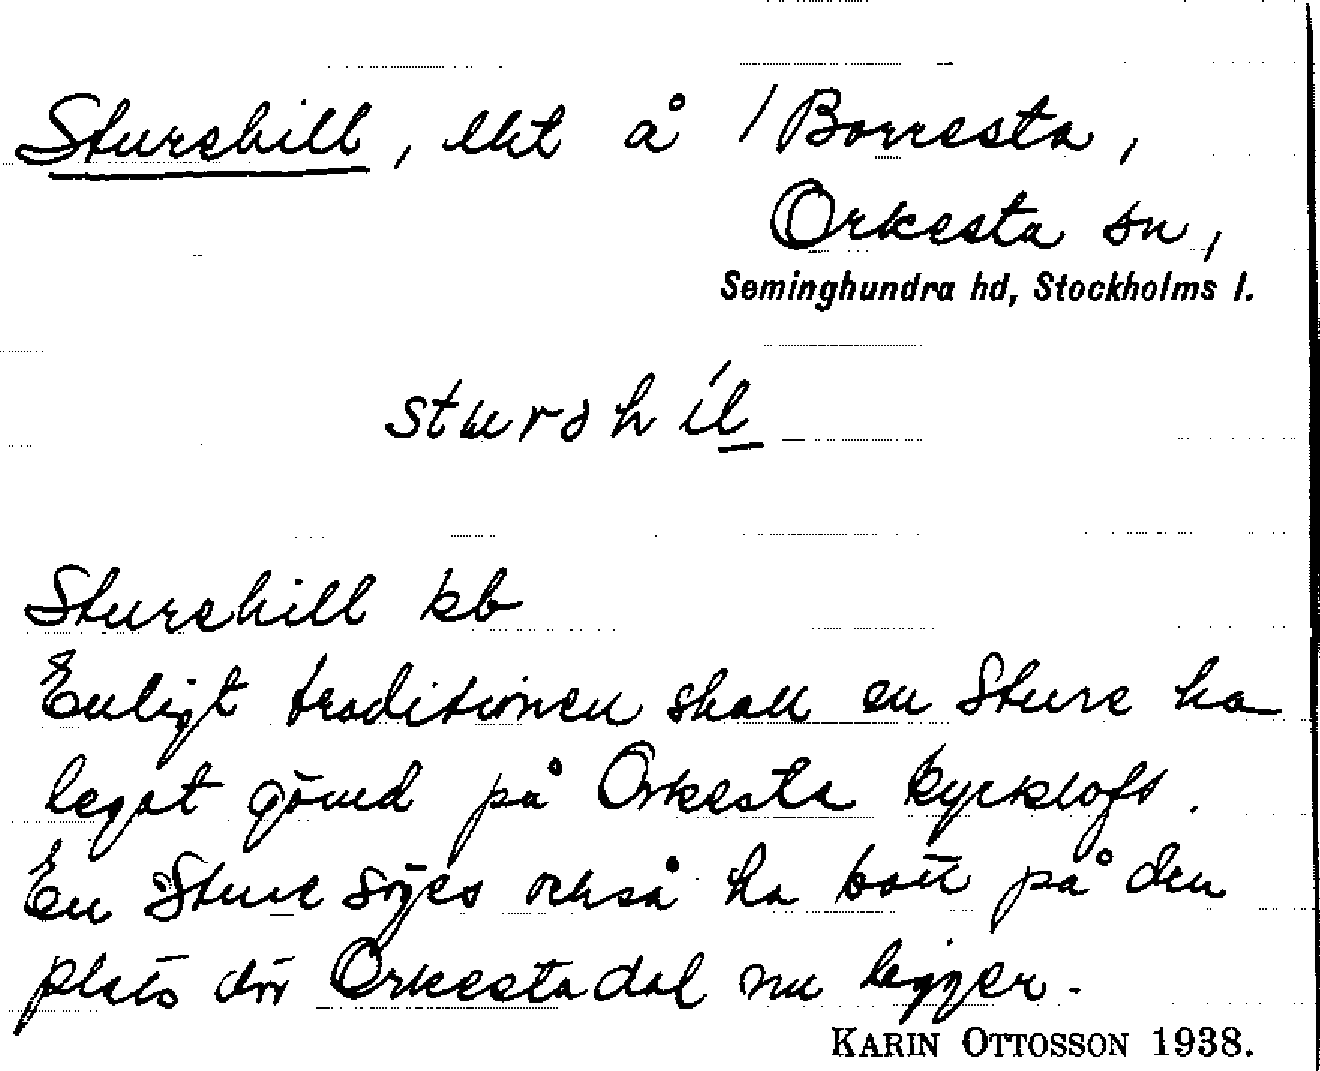 Sturehill, lht å /Borresta,
Orkesta sn,
Seminghundra hd, Stockholms l.
sturəhíl
Sturehill kb
Enligt traditionen skall en Sture ha
legat gömd på Orkesta kyrkloft.
En Sture säges också ha bott på den
plats där Orkestadal nu ligger.
KARIN OTTOSSON 1938.